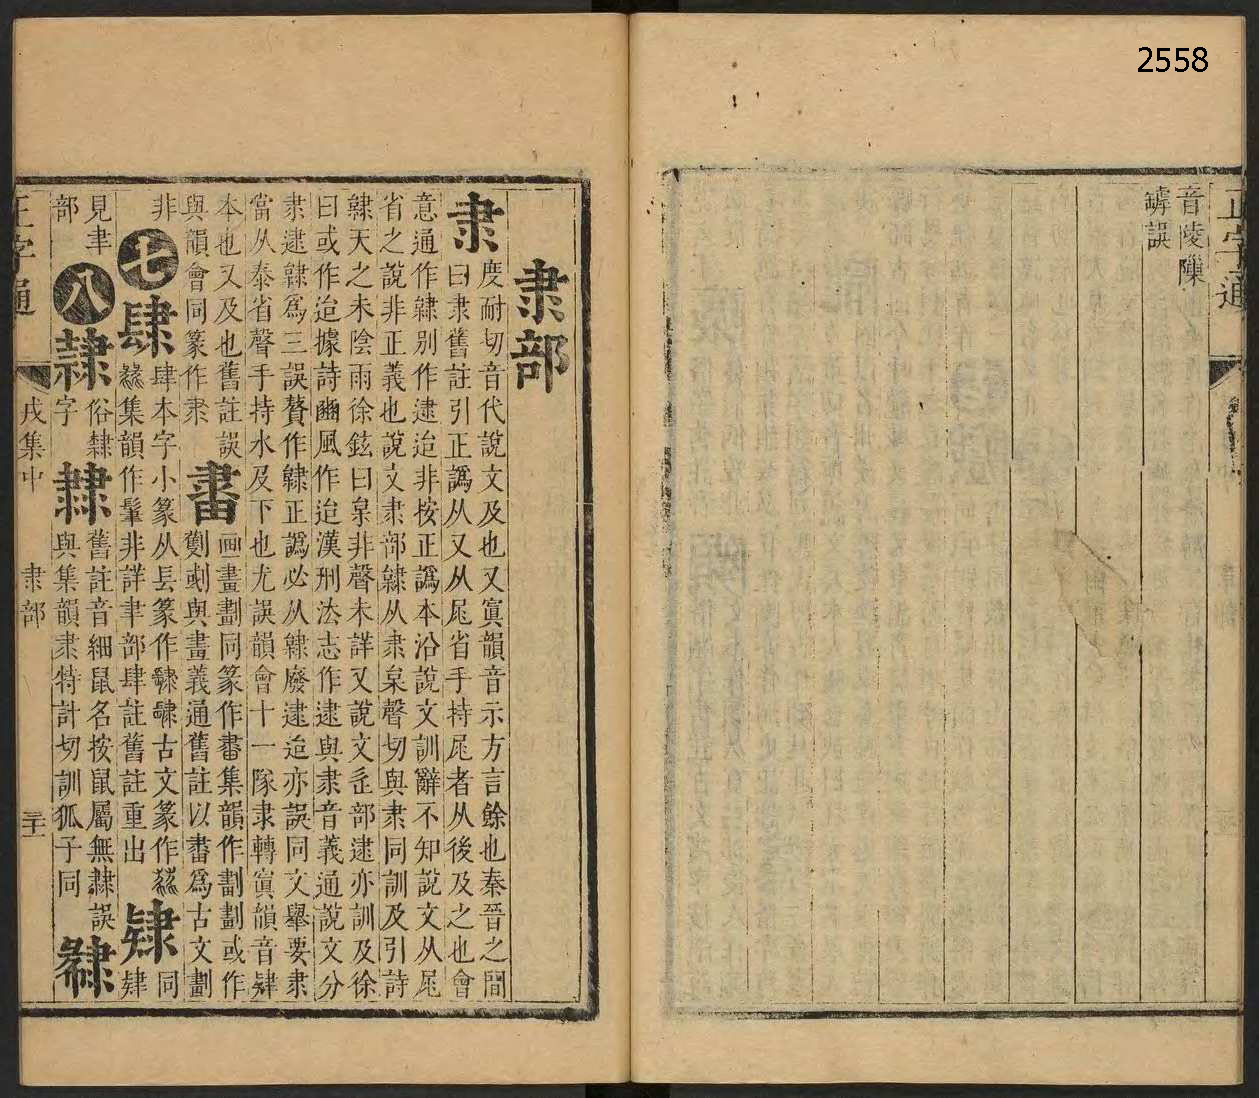 2558
正字通
音陵隟
罅誤
隶部
隶
度耐切音代說文及也又寘韻音示方言餘也秦晉之間
曰隶舊註引正譌从又从𡰣省手持𡰣者从後及之也會
意通作隸別作逮迨非按正譌本沿說文訓辭不知說文从𡰣
省之說非正義也說文隶部隸从隶枲聲切與隶同訓及引詩
隸天之未陰雨徐鉉曰枲非聲未詳又說文辵部逮亦訓及徐
曰或作迨據詩豳風作迨漢刑法志作逮與隶音義通說文分
隶逮隸爲三誤贅作隸正譌必从隸廢逮迨亦誤同文舉要隶
當从泰省聲手持水及下也尤誤韻會十一隊隶轉寘韻音肄
本也又及也舊註誤
與韻會同篆作隶
畵
畫劃同篆作畵集韻作劃劃或作
㓰㓰與畫義通舊註以畵爲古文劃
非
七
肆
肆本字小篆从镸篆作肆肆古文篆作 同
集韻作髳非詳聿部肆註舊註重出
肄
肄
見聿
部
八
隷
俗隸
字
隸
舊註音細鼠名按鼠屬無隸誤
與集韻隶特計切訓狐子同
正字通
戌集中
隶部
三十